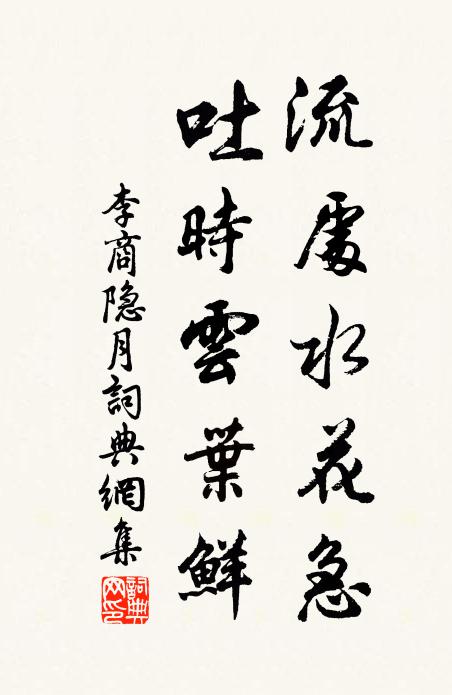 流處水花急
吐時雲葉鮮
李商隐月詞典網集
詞典網印